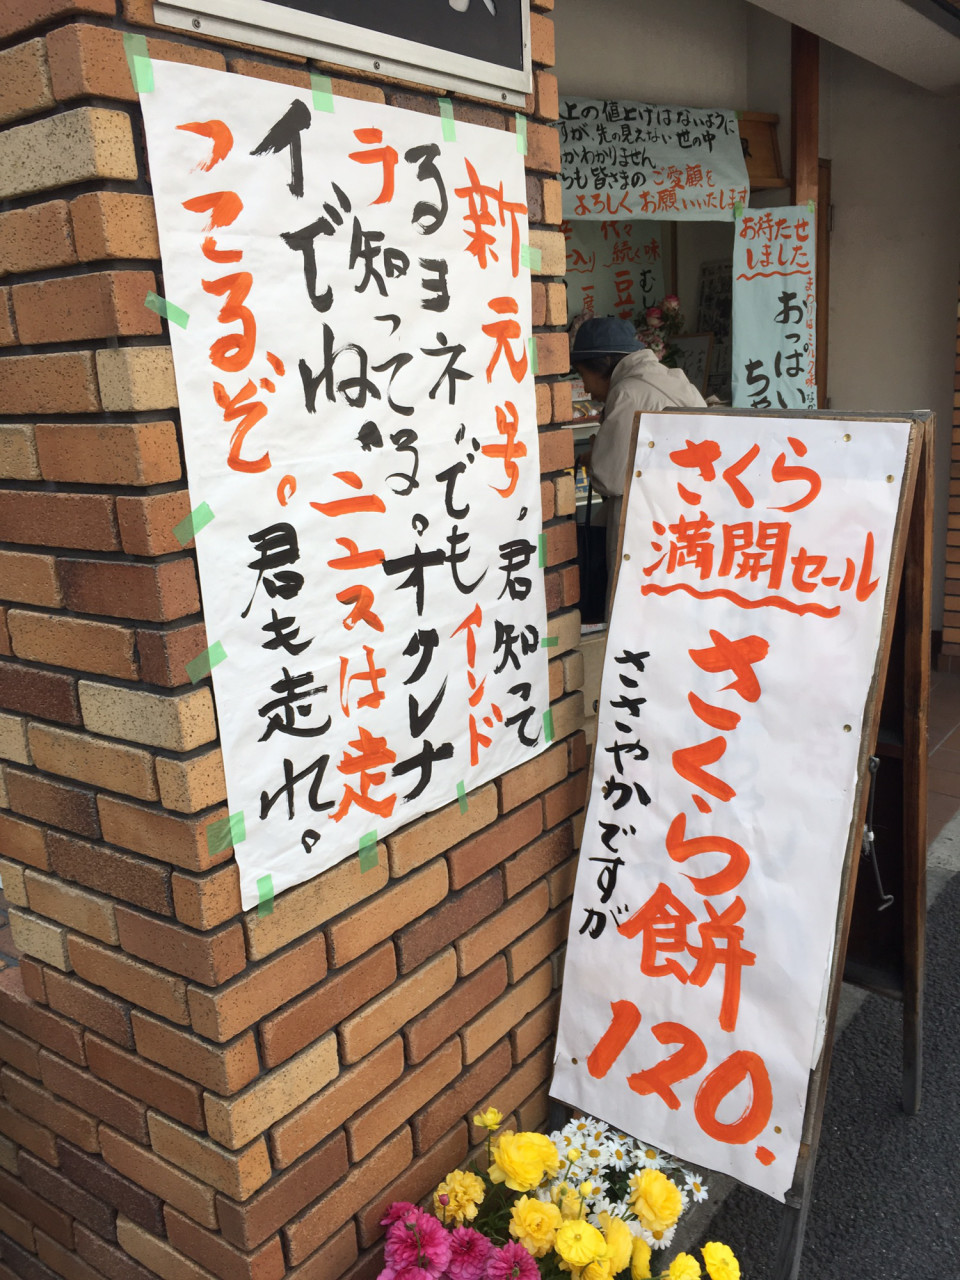 新元号。君知って
るヨネ〝でもインド
ラ知ってる。オクレナ
イ、でね〝ニュスは走
つこるぞ。君も走れ。
上の値上げはないように
すが、先の見えない世の中
かわかりません
らも皆さまのご愛顧を
よろしくお願いいたします
代々
続く味
入り
豆
お待たせ
しました
まわりはミルク味
おっぱい
ちゃ
さくら
満開セール
さくら餅120.
ささやかですが